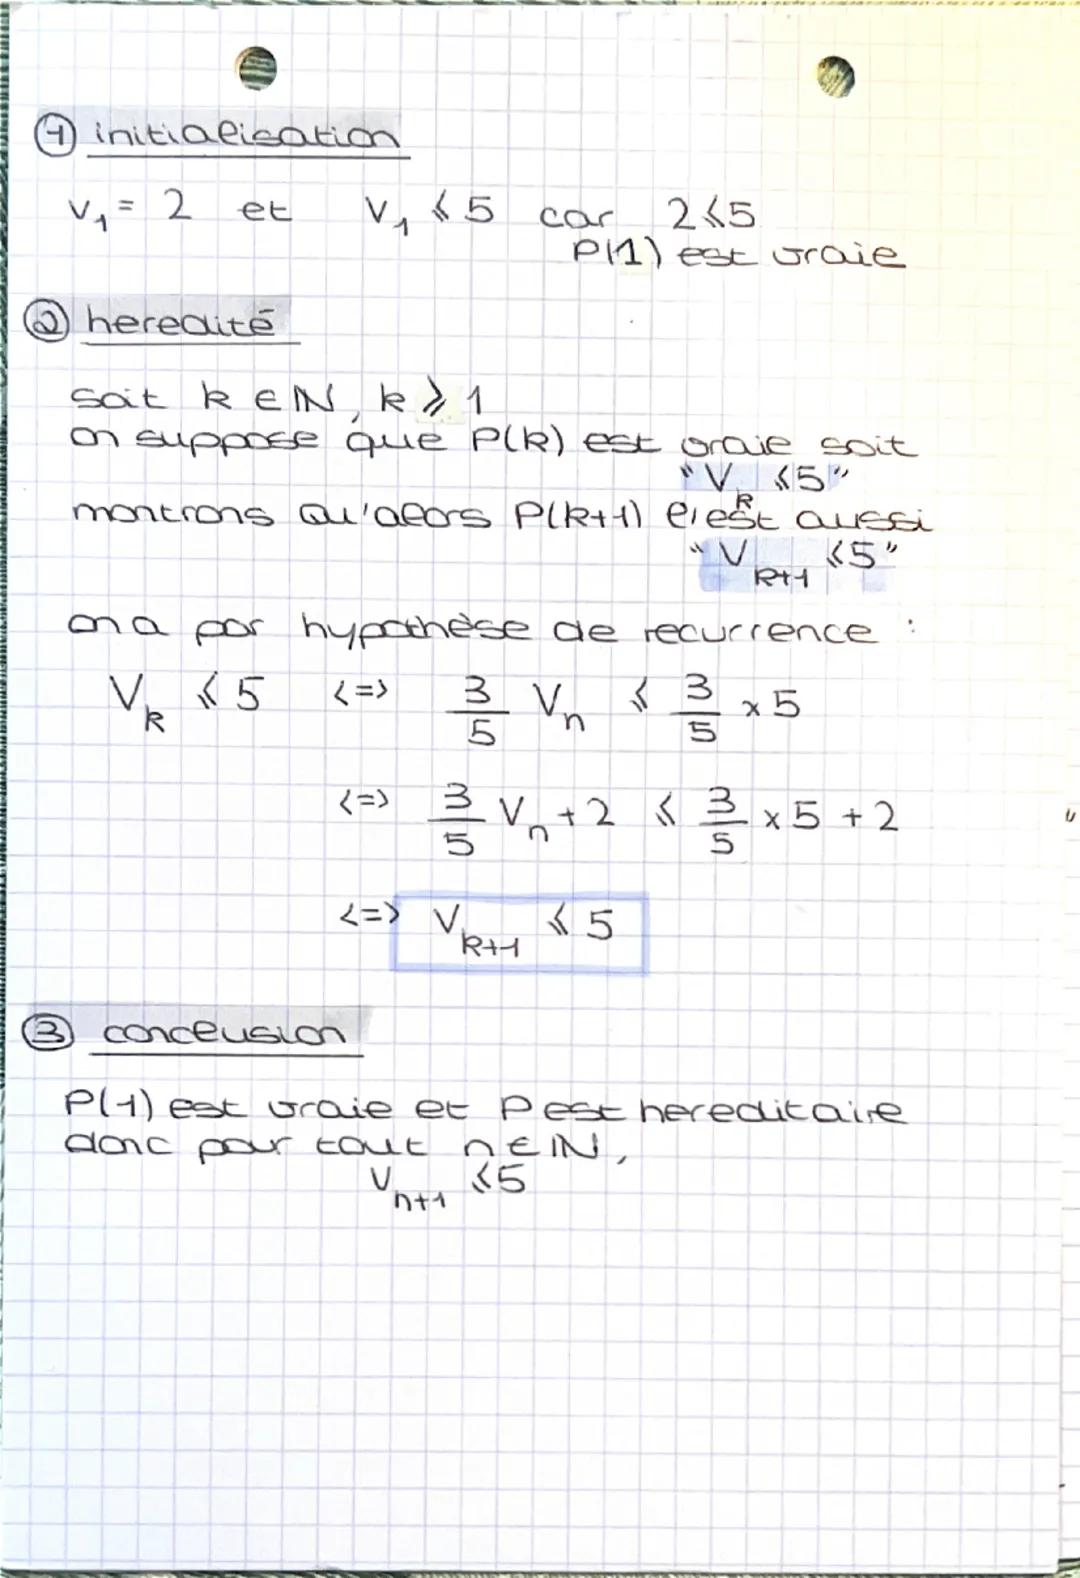 ① initialisation
V₁ = 2 et V₁ ⩽ 5 car 2 ⩽ 5
P(1) est vraie
② heredité
soit k ∈ ℕ, k ⩾ 1
on suppose que P(k) est vraie soit
"V_k ⩽ 5"
montrons qu'alors P(k+1) l'est aussi
"V_{k+1} ⩽ 5"
on a par hypothèse de recurrence :
V_k ⩽ 5 <=> 3/5 V_n ⩽ 3/5 × 5
<=> 3/5 V_n + 2 ⩽ 3/5 × 5 + 2
<=> V_{k+1} ⩽ 5
③ conclusion
P(1) est vraie et P est hereditaire
donc pour tout n ∈ ℕ,
V_{n+1} ⩽ 5